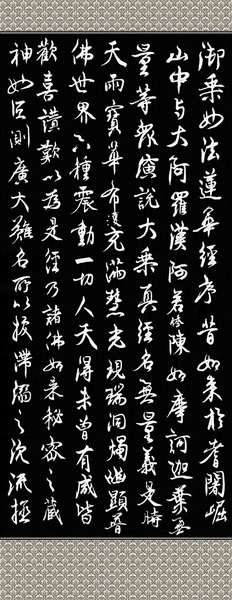 御制妙法蓮華經序昔如来於耆闍崛
山中与大阿羅漢阿若憍陳如摩訶迦葉無
量等眾演說大乘真經名無量義是時
天雨寶華布濩充滿慧光現瑞洞燭幽顯普
佛世界六種震動一切人天得未曾有咸皆
歡喜讚歎以為是經乃諸佛如来秘密之藏
神妙叵測廣大難名所以拔滯溺之沉流拯